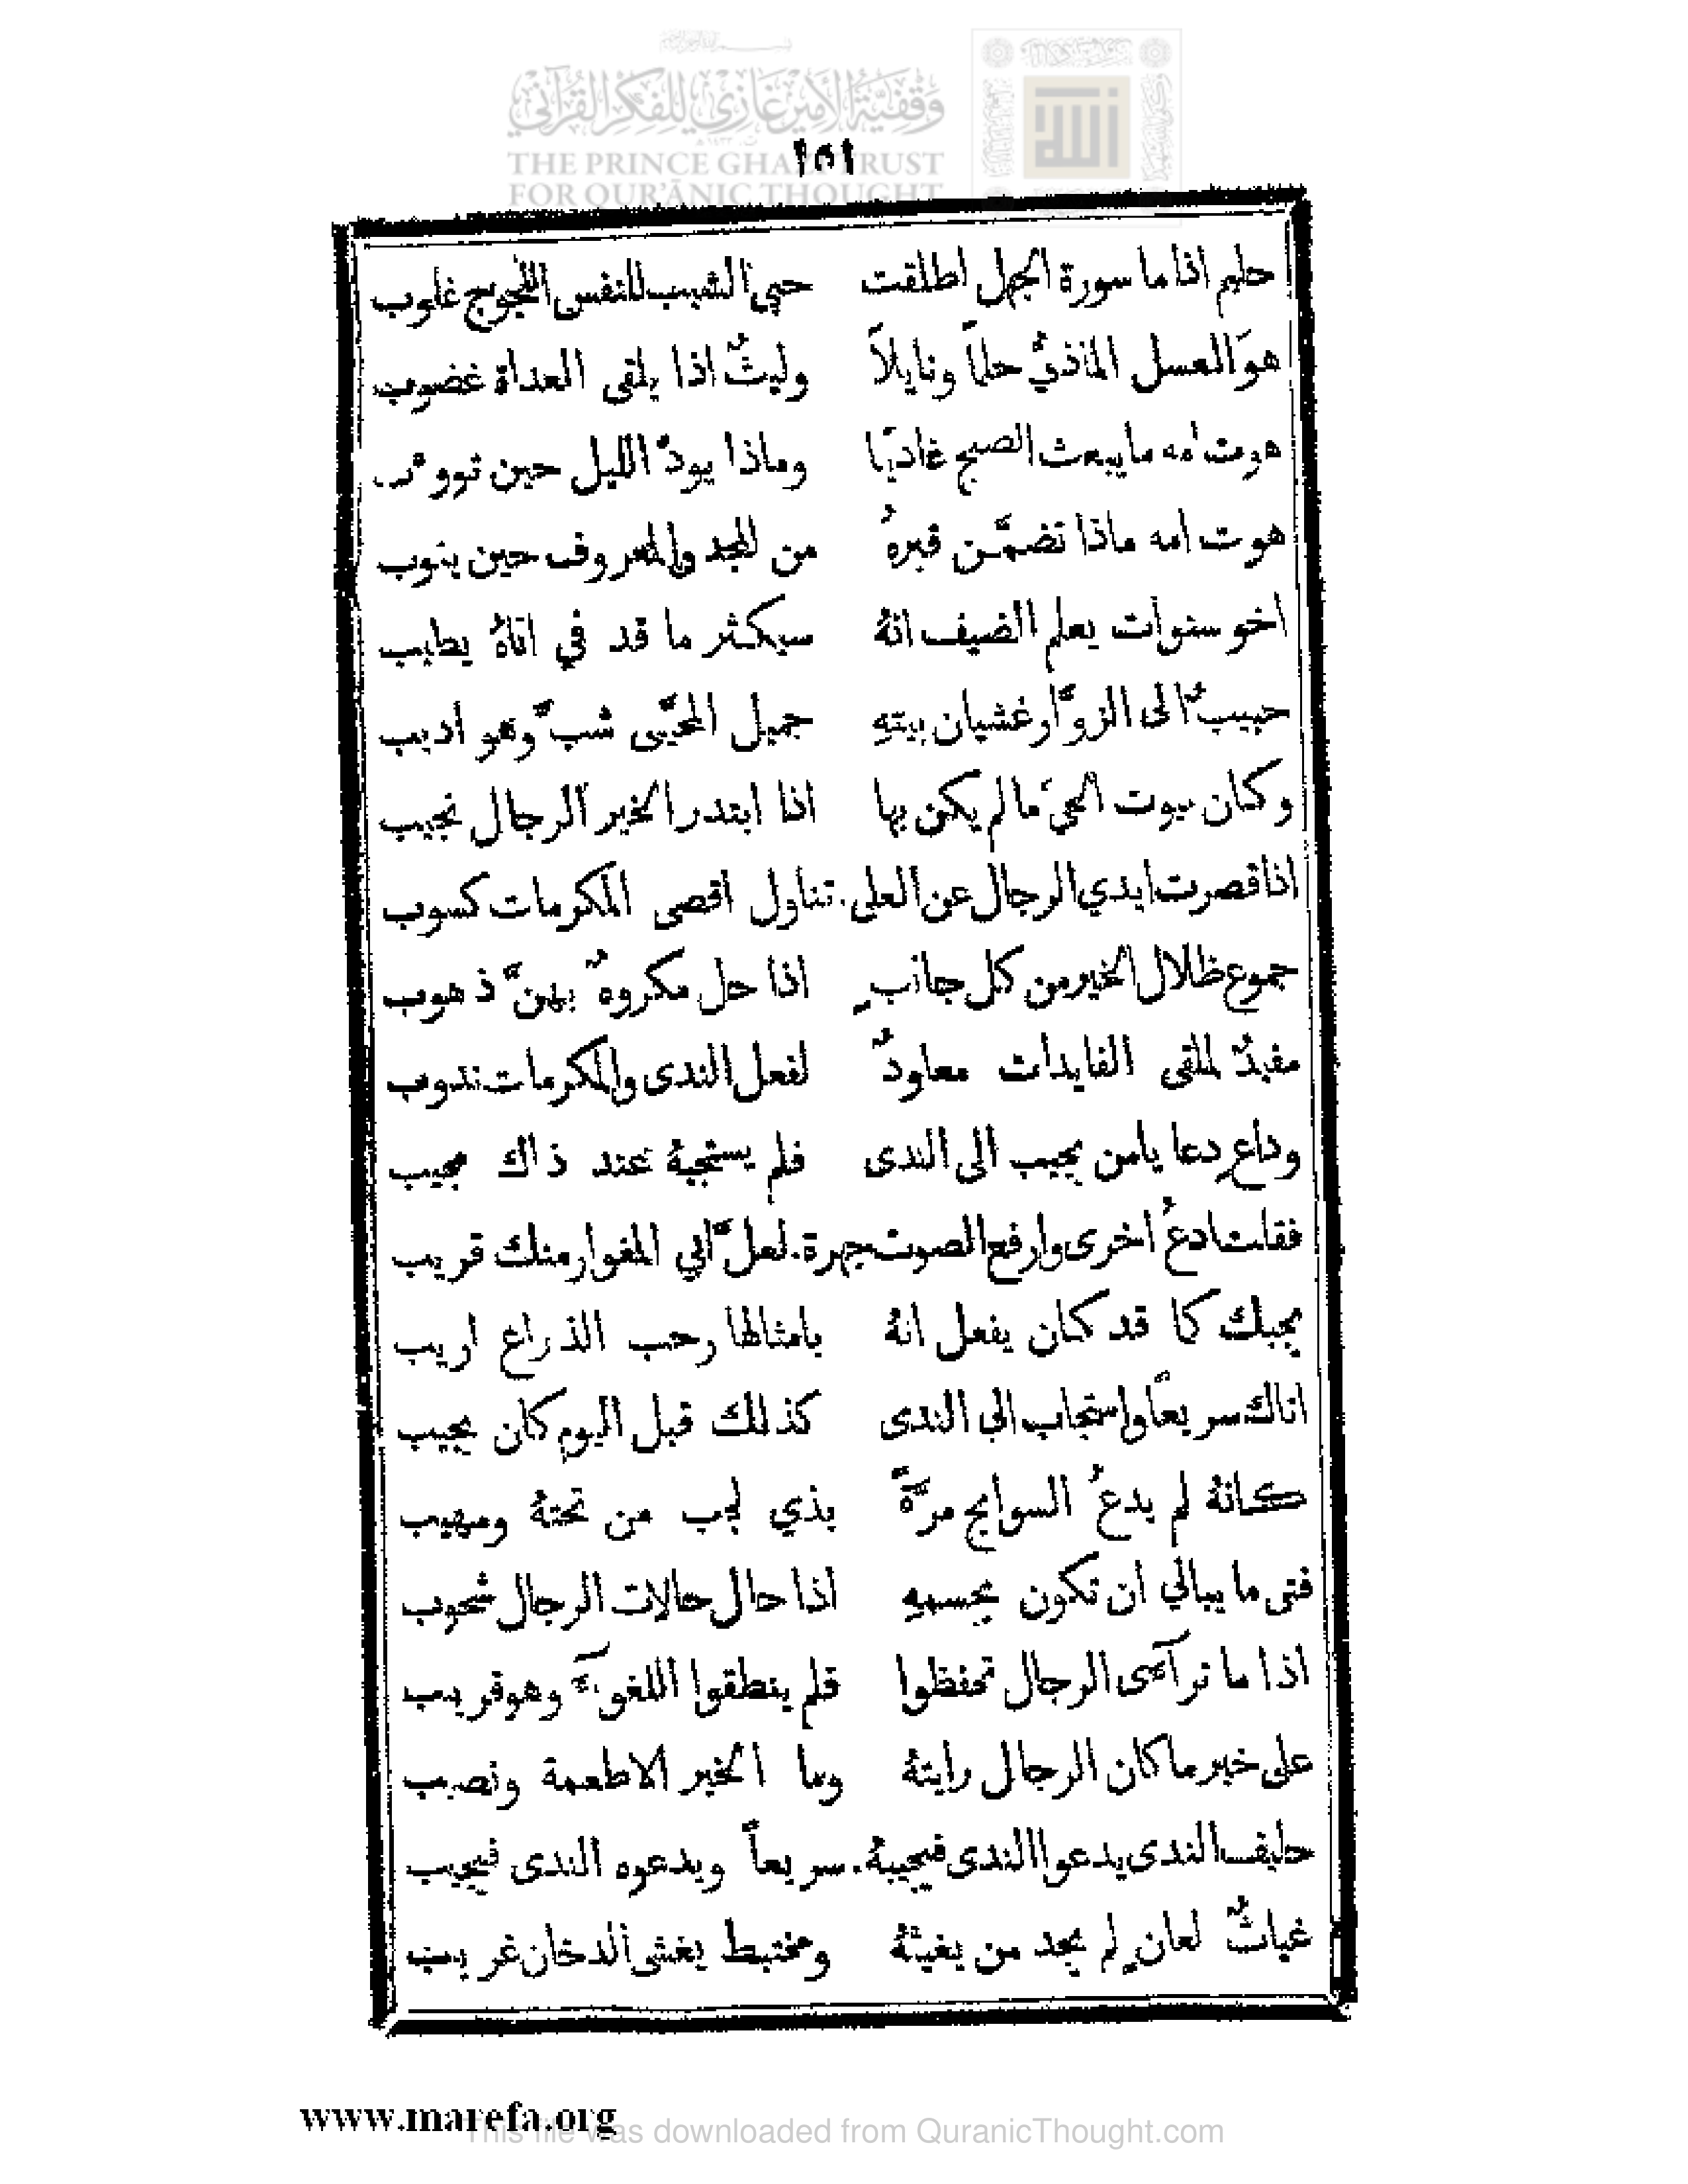 وقفية الأمير غازي للفكر القرآني
THE PRINCE GHAZI TRUST
FOR QUR'ĀNIC THOUGHT
١٥١
حليم اذا ما سورة الجهل اطلقت حبى الشيب للنفس اللجوج غلوب
هوَ العسل الماذيُّ حلماً ونايلاً وليثٌ اذا يلقى العداة غضوب
هوت امه ما يبعث الصبح غاديًا وماذا يودّ الليل حين
هوت امه ماذا تضمَّن قبرهُ من المجد والمعروف حين ينوب
اخو سنوات يعلم الضيف انهُ سيكثر ما قد في اناهُ يطيب
حبيبٌ الى الزوَّار غشيان بيتهِ جميل المحيَّى شبَّ وهو اديب
وكان بيوت الحيّ ما لم يكن بها اذا ابتدر الخير الرجال نجيب
اذا قصرت ايدي الرجال عن العلى. تناول اقصى المكرمات كسوب
جموع ظلال الخير من كل جانبٍ اذا حل مكروهٌ بهنَّ ذهوب
مفيدٌ لملقى الفايدات معاودٌ لفعل الندى والمكرمات ندوب
وداعٍ دعا يا من يجيب الى الندى فلم يستجبهُ عند ذاك مجيب
فقلت ادعُ اخرى وارفع الصوت جهرة. لعلَّ ابي المغوار منك قريب
يجبك كما قد كان يفعل انهُ بامثالها رحب الذراع اريب
اتاك سريعًا واستجاب الى الندى كذلك قبل اليوم كان يجيب
كانهُ لم يدعُ السوابح مرَّةً بذي لجب من تحتهُ ومهيب
فتى ما يبالي ان تكون بجسمهِ اذا حال حالات الرجال شحوب
اذا ما ترآءى الرجال تحفظوا فلم ينطقوا وهو قريب
على خير ما كان الرجال رايتهُ وما الخير الا طعمة ونصيب
حليف الندى يدعوا الندى فيجيبهُ. سريعاً ويدعوه الندى فيجيب
غياثٌ لعانٍ لم يجد من يغيثهُ ومختبط يغشى الدخان غريب
www.marefa.org
This file was downloaded from QuranicThought.com